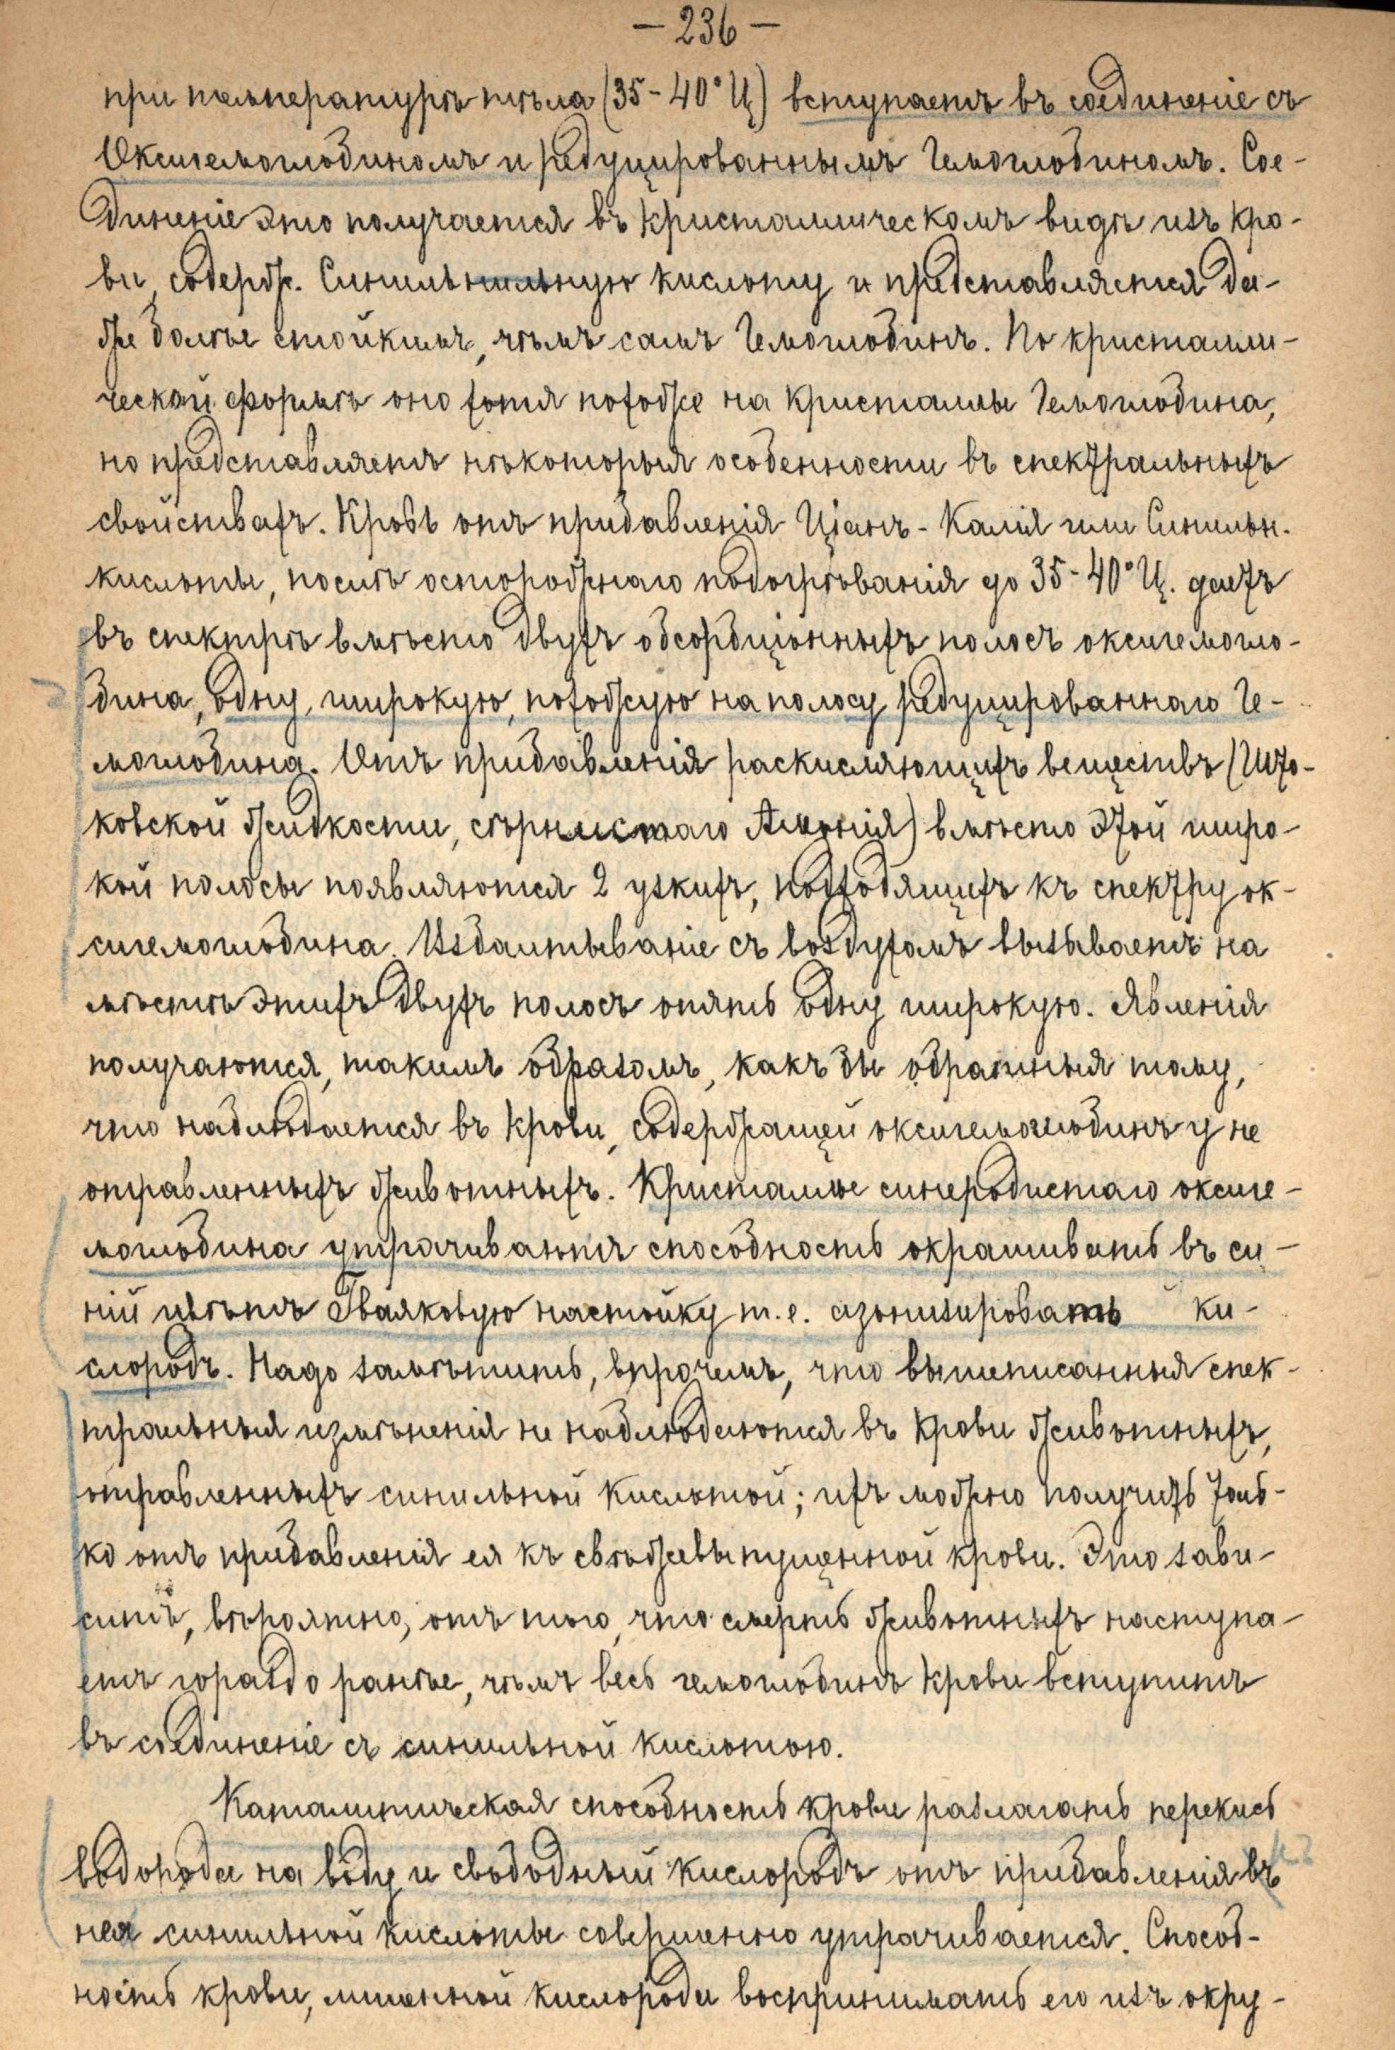 — 236 —
при температурѣ тѣла (35 - 40° Ц) вступаетъ въ соединеніе съ
Оксигемоглобиномъ и редуцированнымъ Гемоглобиномъ. Сое-
диненіе это получается въ кристаллическомъ видѣ изъ кро-
ви, содерж. Синильную кислоту и представляется да-
же болѣе стойкимъ, чѣмъ самъ Гемоглобинъ. По кристалли-
ческой формѣ оно хотя похоже на кристаллы Гемоглобина,
но представляетъ нѣкоторыя особенности въ спектральныхъ
свойствахъ. Кровь отъ прибавленія Ціанъ - Калія или Синильн.
кислоты, послѣ осторожнаго подогрѣванія до 35 - 40° Ц. даетъ
въ спектрѣ вмѣсто двухъ обсорбціонныхъ полосъ оксигемогло-
бина, одну, широкую, похожую на полосу редуцированнаго Ге-
моглобина. Отъ прибавленія раскисляющихъ веществъ (Што-
ковской жидкости, сѣрнистаго Амонія) вмѣсто этой широ-
кой полосы появляются 2 узкихъ, подходящихъ къ спектру ок-
сигемоглобина. Избалтываніе съ воздухомъ вызываетъ на
мѣстѣ этихъ двухъ полосъ опять одну широкую. Явленія
получаются, такимъ образомъ, какъ бы обратныя тому,
что наблюдается въ крови, содержащей оксигемоглобинъ у не
отравленныхъ животныхъ. Кристаллы синеродистаго оксиге-
моглобина утрачиваютъ способность окрашивать въ си-
ній цвѣтъ Гваяковую настойку т. е. азонизировать ки-
слородъ. Надо замѣтить, впрочемъ, что вышеписанныя спек-
тральныя измѣненія не наблюдаются въ крови животныхъ,
отравленныхъ синильной кислотой; ихъ можно получить толь-
ко отъ прибавленія ея къ свѣжевыпущенной крови. Это зави-
ситъ, вѣроятно, отъ того, что смерть животныхъ наступа-
етъ гораздо ранѣе, чѣмъ весь гемоглобинъ крови вступитъ
въ соединеніе съ синильной кислотою.
Каталитическая способность крови разлагать перекись
водорода на воду и свободный кислородъ отъ прибавленія въ
нея синильной кислоты совершенно утрачивается. Способ-
ность крови, лишенной кислорода воспринимать его изъ окру-